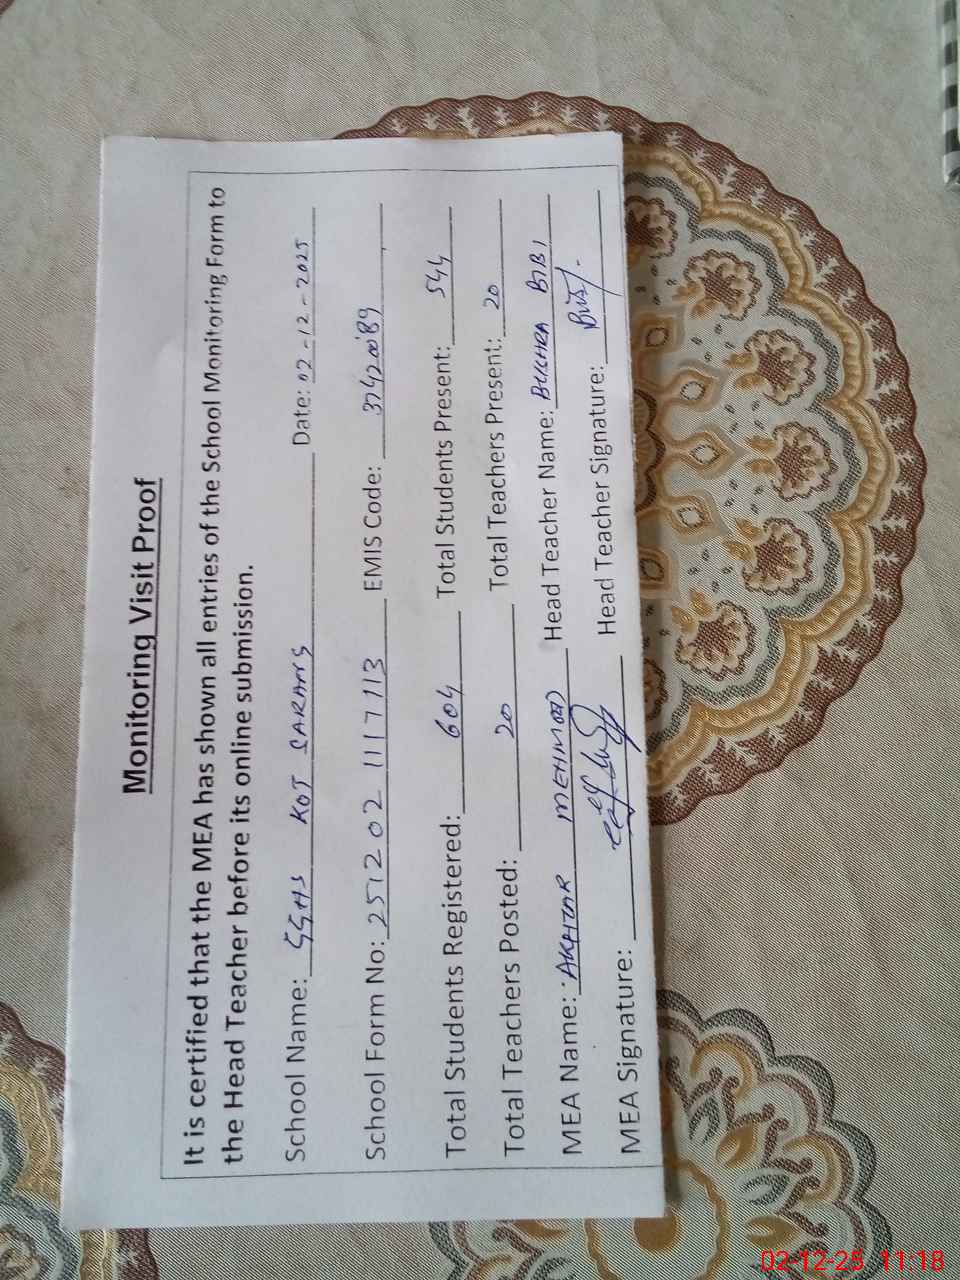 Monitoring Visit Proof
It is certified that the MEA has shown all entries of the School Monitoring Form to
the Head Teacher before its online submission.
School Name: GGHS KOT SARANG Date: 02-12-2025
School Form No: 251202 1117113 EMIS Code: 37420089
Total Students Registered: 604 Total Students Present: 544
Total Teachers Posted: 20 Total Teachers Present: 20
MEA Name: AKHTAR MEHMOOD Head Teacher Name: BUSHRA BIBI
MEA Signature: Head Teacher Signature:
02-12-25 11:18